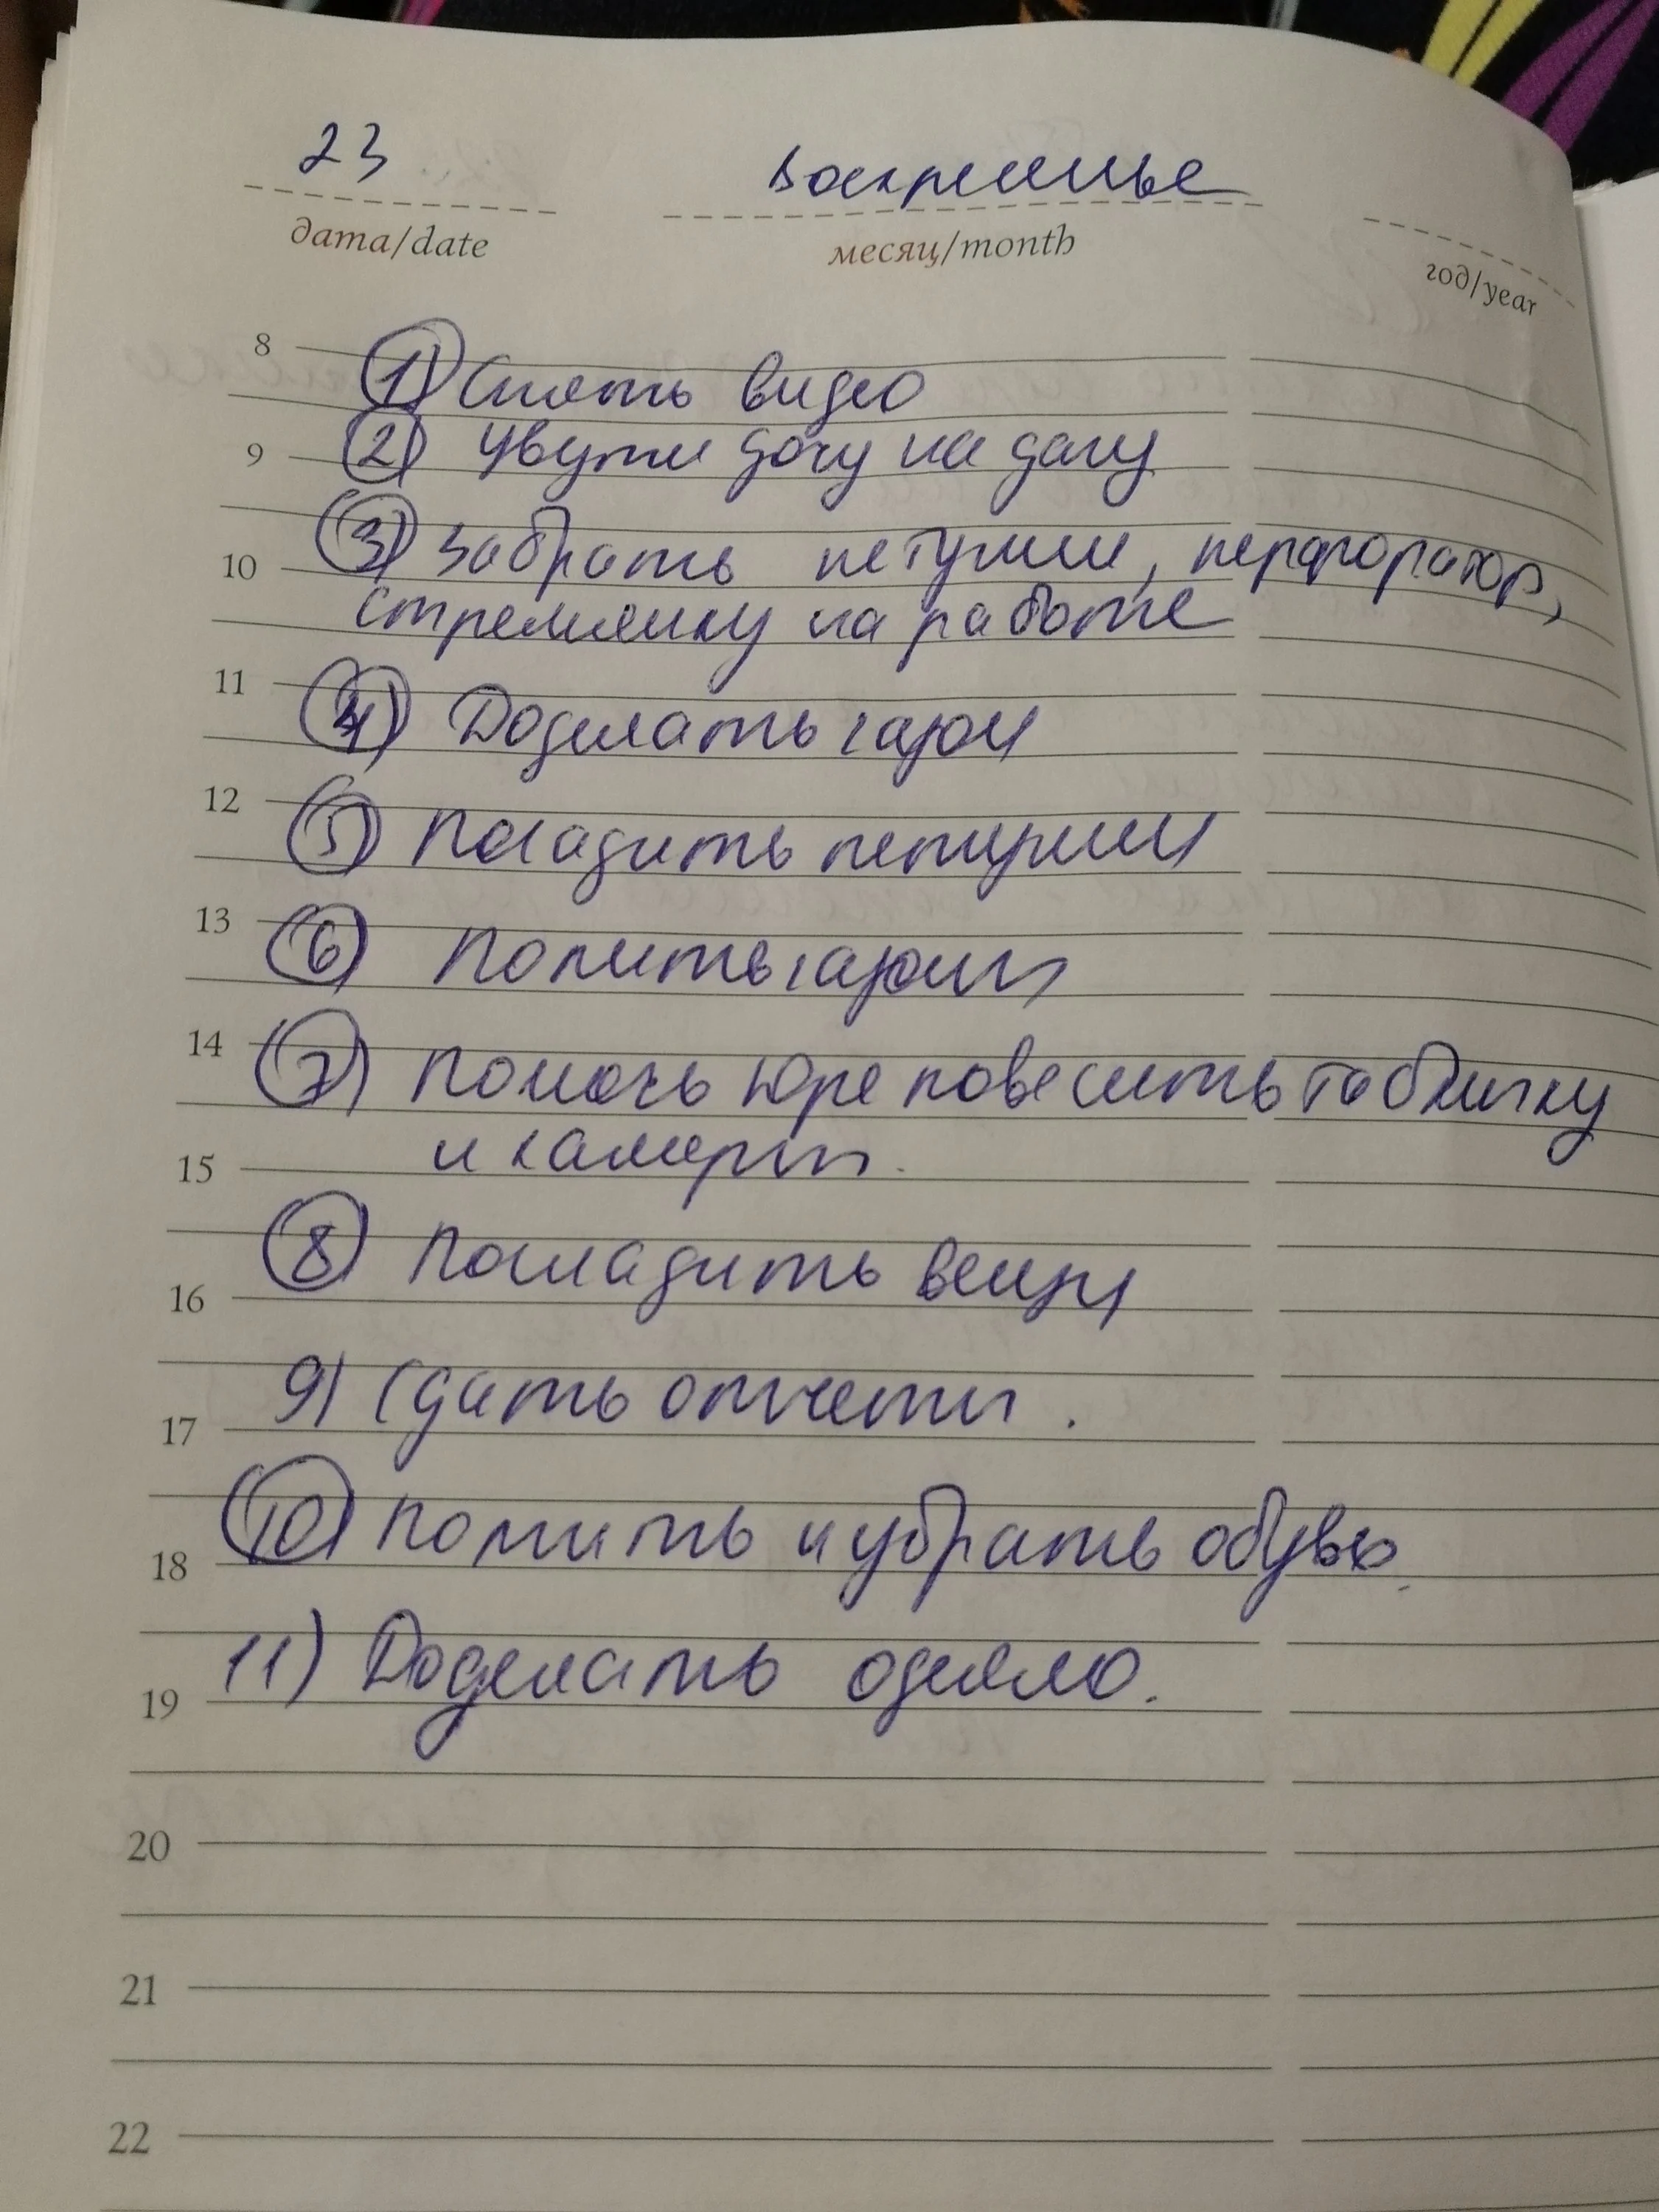 23 воскресенье
дата/date месяц/month год/year
8 1) Снять видео
9 2) увути дочу на дачу
10 3) Забрать петунии, перфоратор,
стремянку на работе
11 4) Доделать газон
12 5) Посадить петунии
13 6) Полить газон
14 7) Помочь Юре повесить табличку
15 и камеры.
16 8) Погладить вещи
17 9) Сдать отчеты.
18 10) Помыть и убрать обувь.
19 11) Доделать одеяло.
20
21
22